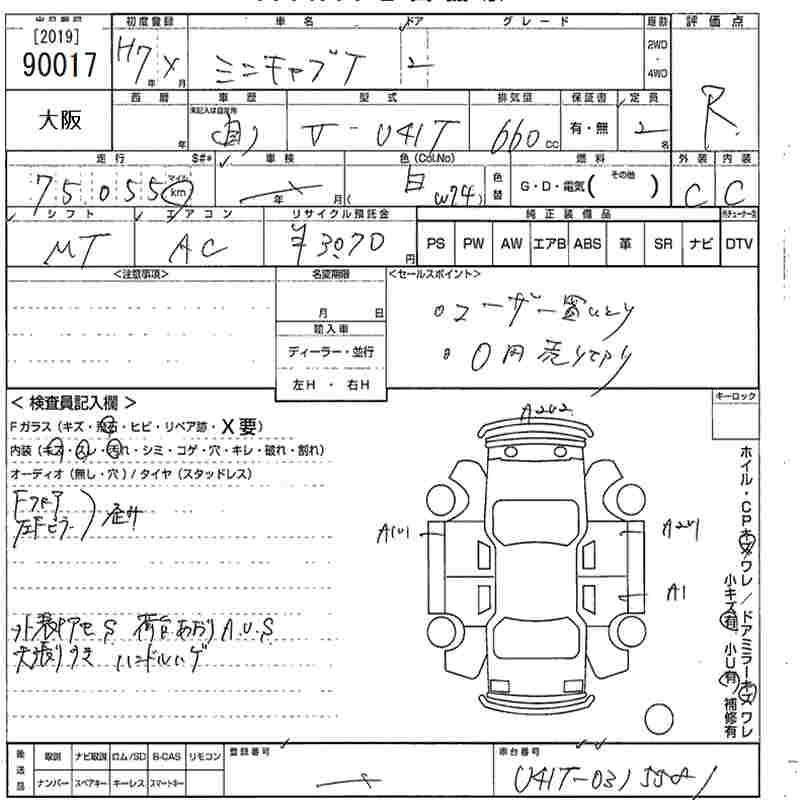 [2019]
90017
大阪
初度登録 車名 ドア グレード 駆動 評価点
H7 年 月 ミニキャブT 2 2WD・4WD R
西暦 車歴 型式 排気量 保証書 定員
年 未記入は自家用 自 V-U41T 660cc 有・無 2名
走行 S#* 車検 色(Col.No) 燃料 外装 内装
75055 マイル km 年 月 白 (W74) 色替 G・D・電気( その他 ) C C
シフト エアコン リサイクル預託金 純正装備品
MT AC ¥3070円 PS PW AW エアB ABS 革 SR ナビ DTV
<注意事項> 名変期限 <セールスポイント>
月 日
。ユーザー買いとり
輸入車
ディーラー・並行
。0円売り切り
左H・右H
キーロック
< 検査員記入欄 >
Fガラス(キズ・飛石・ヒビ・リペア跡・X要)
内装(キズ・スレ・汚れ・シミ・コゲ・穴・キレ・破れ・割れ)
オーディオ(無し・穴)/タイヤ(スタッドレス)
Fフロア
左Fピラー
外装アセS 荷台あおりA.U.S
天張りウキ ハンドルハゲ
A2U2
A1U1
A2U1
A1
ホイル・CPキズワレ/ドアミラーキズワレ
小キズ有 小U有 補修有
後送品 取説 ナビ取説 ロム/SD B-CAS リモコン 登録番号 車台番号
ナンバー スペアキー キーレス スマートキー